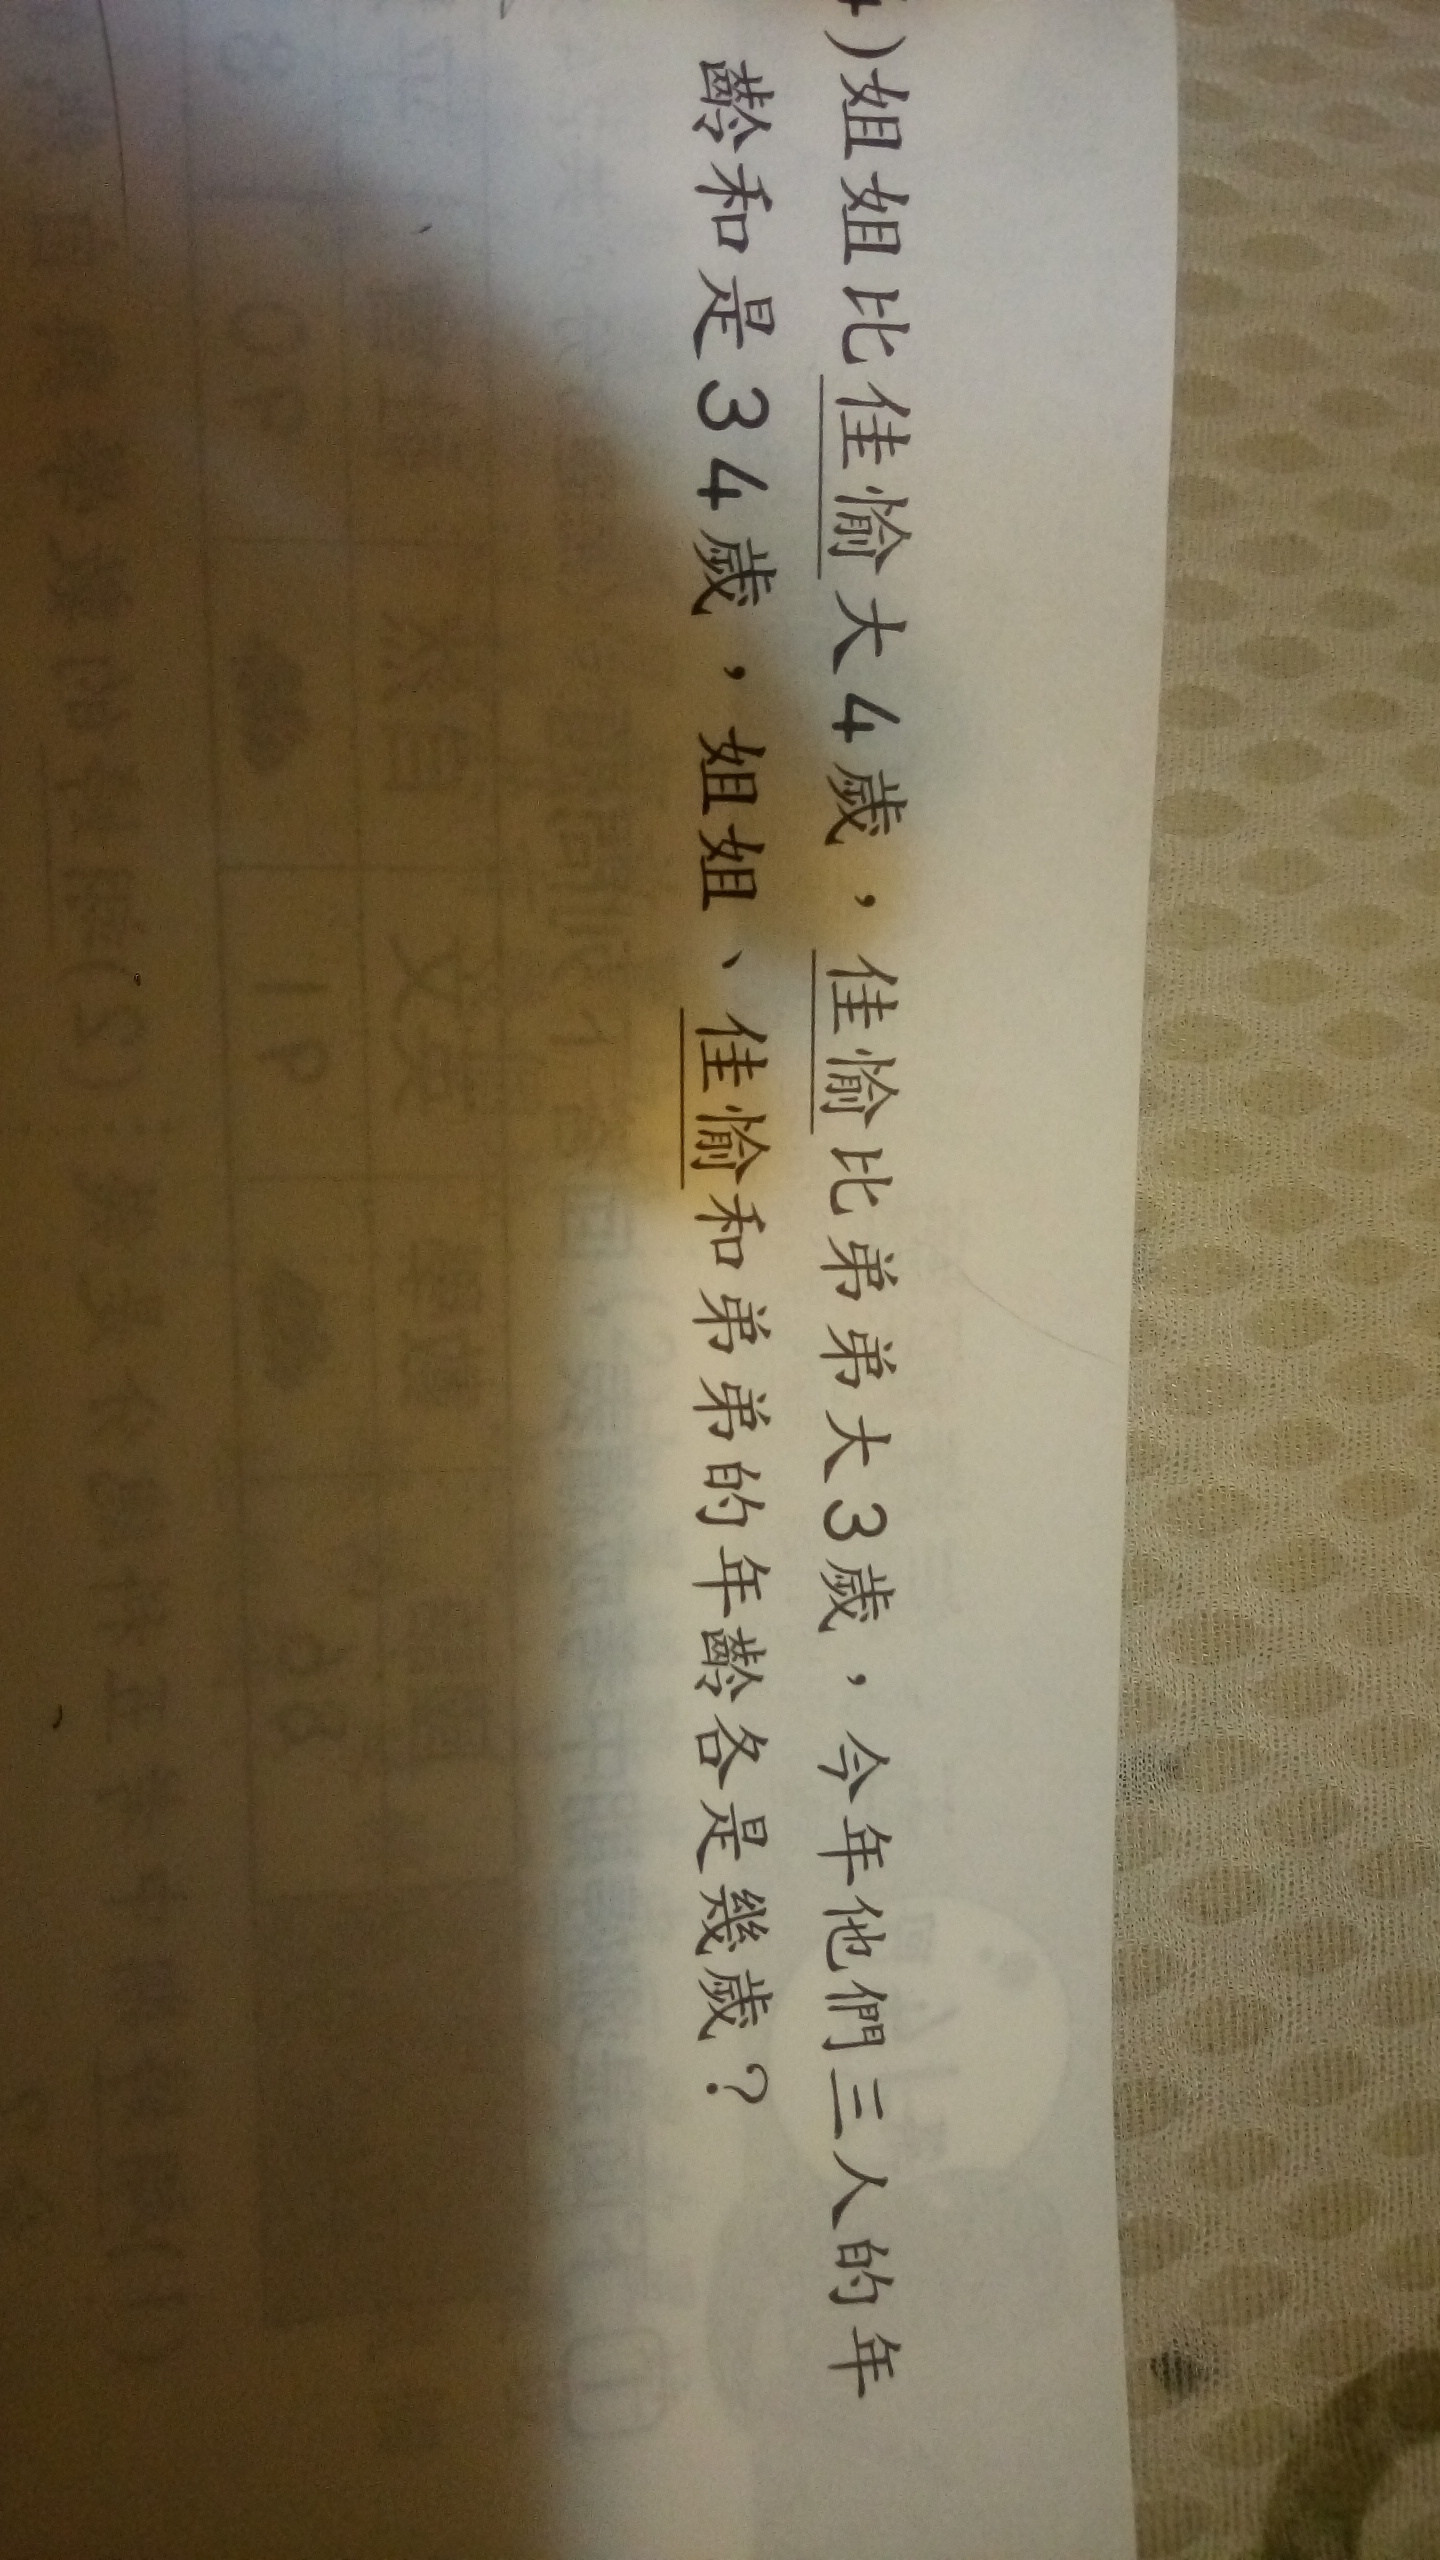 )姐姐比佳愉大4歲，佳愉比弟弟大3歲，今年他們三人的年
齡和是34歲，姐姐、佳愉和弟弟的年齡各是幾歲？